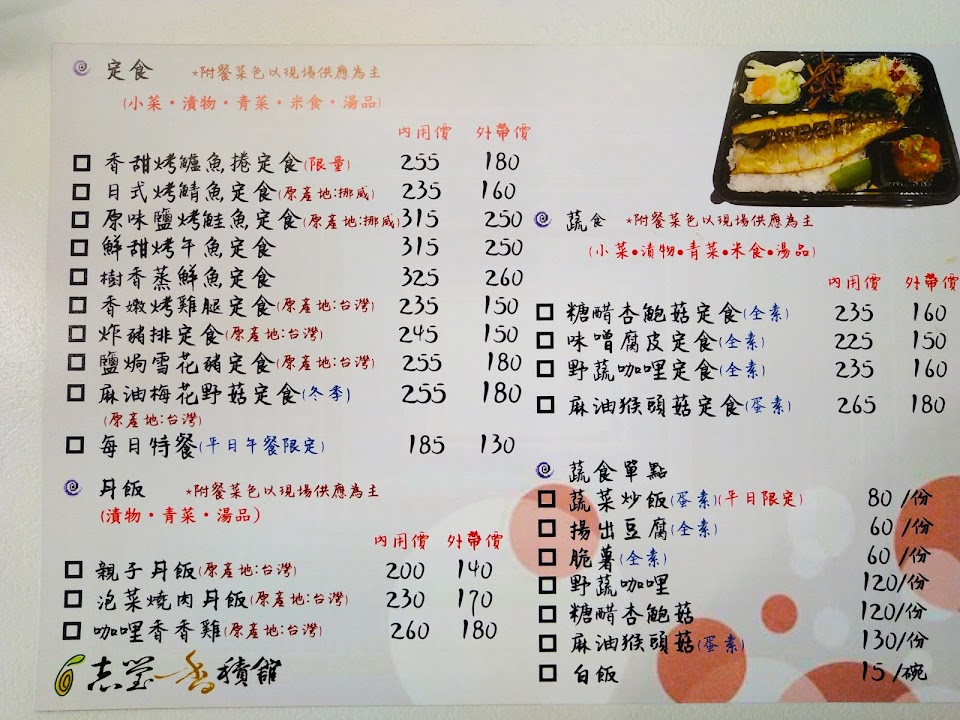 定食 *附餐菜色以現場供應為主
(小菜•漬物•青菜•米食•湯品)
內用價 外帶價
香甜烤鱸魚捲定食(限量) 255 180
日式烤鯖魚定食(原產地:挪威) 235 160
原味鹽烤鮭魚定食(原產地:挪威) 315 250
鮮甜烤午魚定食 315 250
樹香蒸鮮魚定食 325 260
香嫩烤雞腿定食(原產地:台灣) 235 150
炸豬排定食(原產地:台灣) 245 150
鹽焗雪花豬定食(原產地:台灣) 255 180
麻油梅花野菇定食(冬季) 255 180
(原產地:台灣)
每日特餐(平日午餐限定) 185 130
丼飯 *附餐菜色以現場供應為主
(漬物•青菜•湯品)
內用價 外帶價
親子丼飯(原產地:台灣) 200 140
泡菜燒肉丼飯(原產地:台灣) 230 170
咖哩香香雞(原產地:台灣) 260 180
志瑩香積館
蔬食 *附餐菜色以現場供應為主
(小菜•漬物•青菜•米食•湯品)
內用價 外帶價
糖醋杏鮑菇定食(全素) 235 160
味噌腐皮定食(全素) 225 150
野蔬咖哩定食(全素) 235 160
麻油猴頭菇定食(蛋素) 265 180
蔬食單點
蔬菜炒飯(蛋素)(平日限定) 80/份
揚出豆腐(全素) 60/份
脆薯(全素) 60/份
野蔬咖哩 120/份
糖醋杏鮑菇 120/份
麻油猴頭菇(蛋素) 130/份
白飯 15/碗